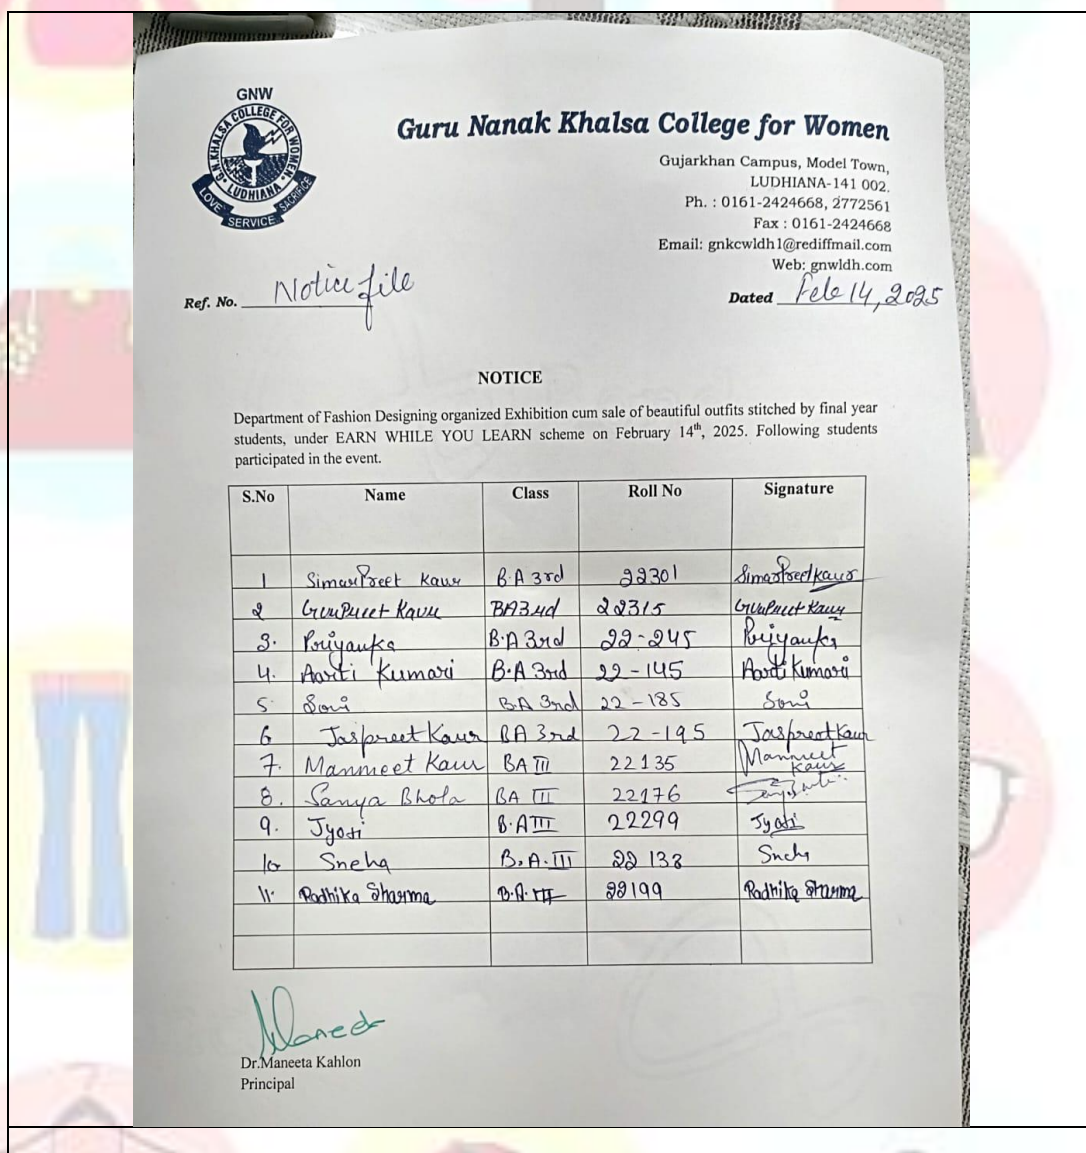 GNW
G.N.KHALSA COLLEGE FOR WOMEN
• LUDHIANA •
LOVE SERVICE SACRIFICE
Guru Nanak Khalsa College for Women
Gujarkhan Campus, Model Town,
LUDHIANA-141 002.
Ph. : 0161-2424668, 2772561
Fax : 0161-2424668
Email: gnkcwldh1@rediffmail.com
Web: gnwldh.com
Ref. No. Notice file Dated Feb 14, 2025
NOTICE
Department of Fashion Designing organized Exhibition cum sale of beautiful outfits stitched by final year
students, under EARN WHILE YOU LEARN scheme on February 14th, 2025. Following students
participated in the event.
S.No Name Class Roll No Signature
1 SimarPreet Kaur B.A 3rd 22301 SimarPreet Kaur
2 GurPreet Kaur BA 3rd 22315 GurPreet Kaur
3. Priyanka B.A 3rd 22-245 Priyanka
4. Aarti Kumari B.A 3rd 22-145 Aarti Kumari
5. Soni B.A 3rd 22-185 Soni
6 Jaspreet Kaur BA 3rd 22-195 Jaspreet Kaur
7. Manmeet Kaur BA III 22135 Manmeet Kaur
8. Sanya Bhola BA III 22176
9. Jyoti B.A III 22299 Jyoti
10 Sneha B.A.III 22138 Sneha
11. Radhika Sharma B.A. III 22199 Radhika Sharma
Maneeta
Dr.Maneeta Kahlon
Principal